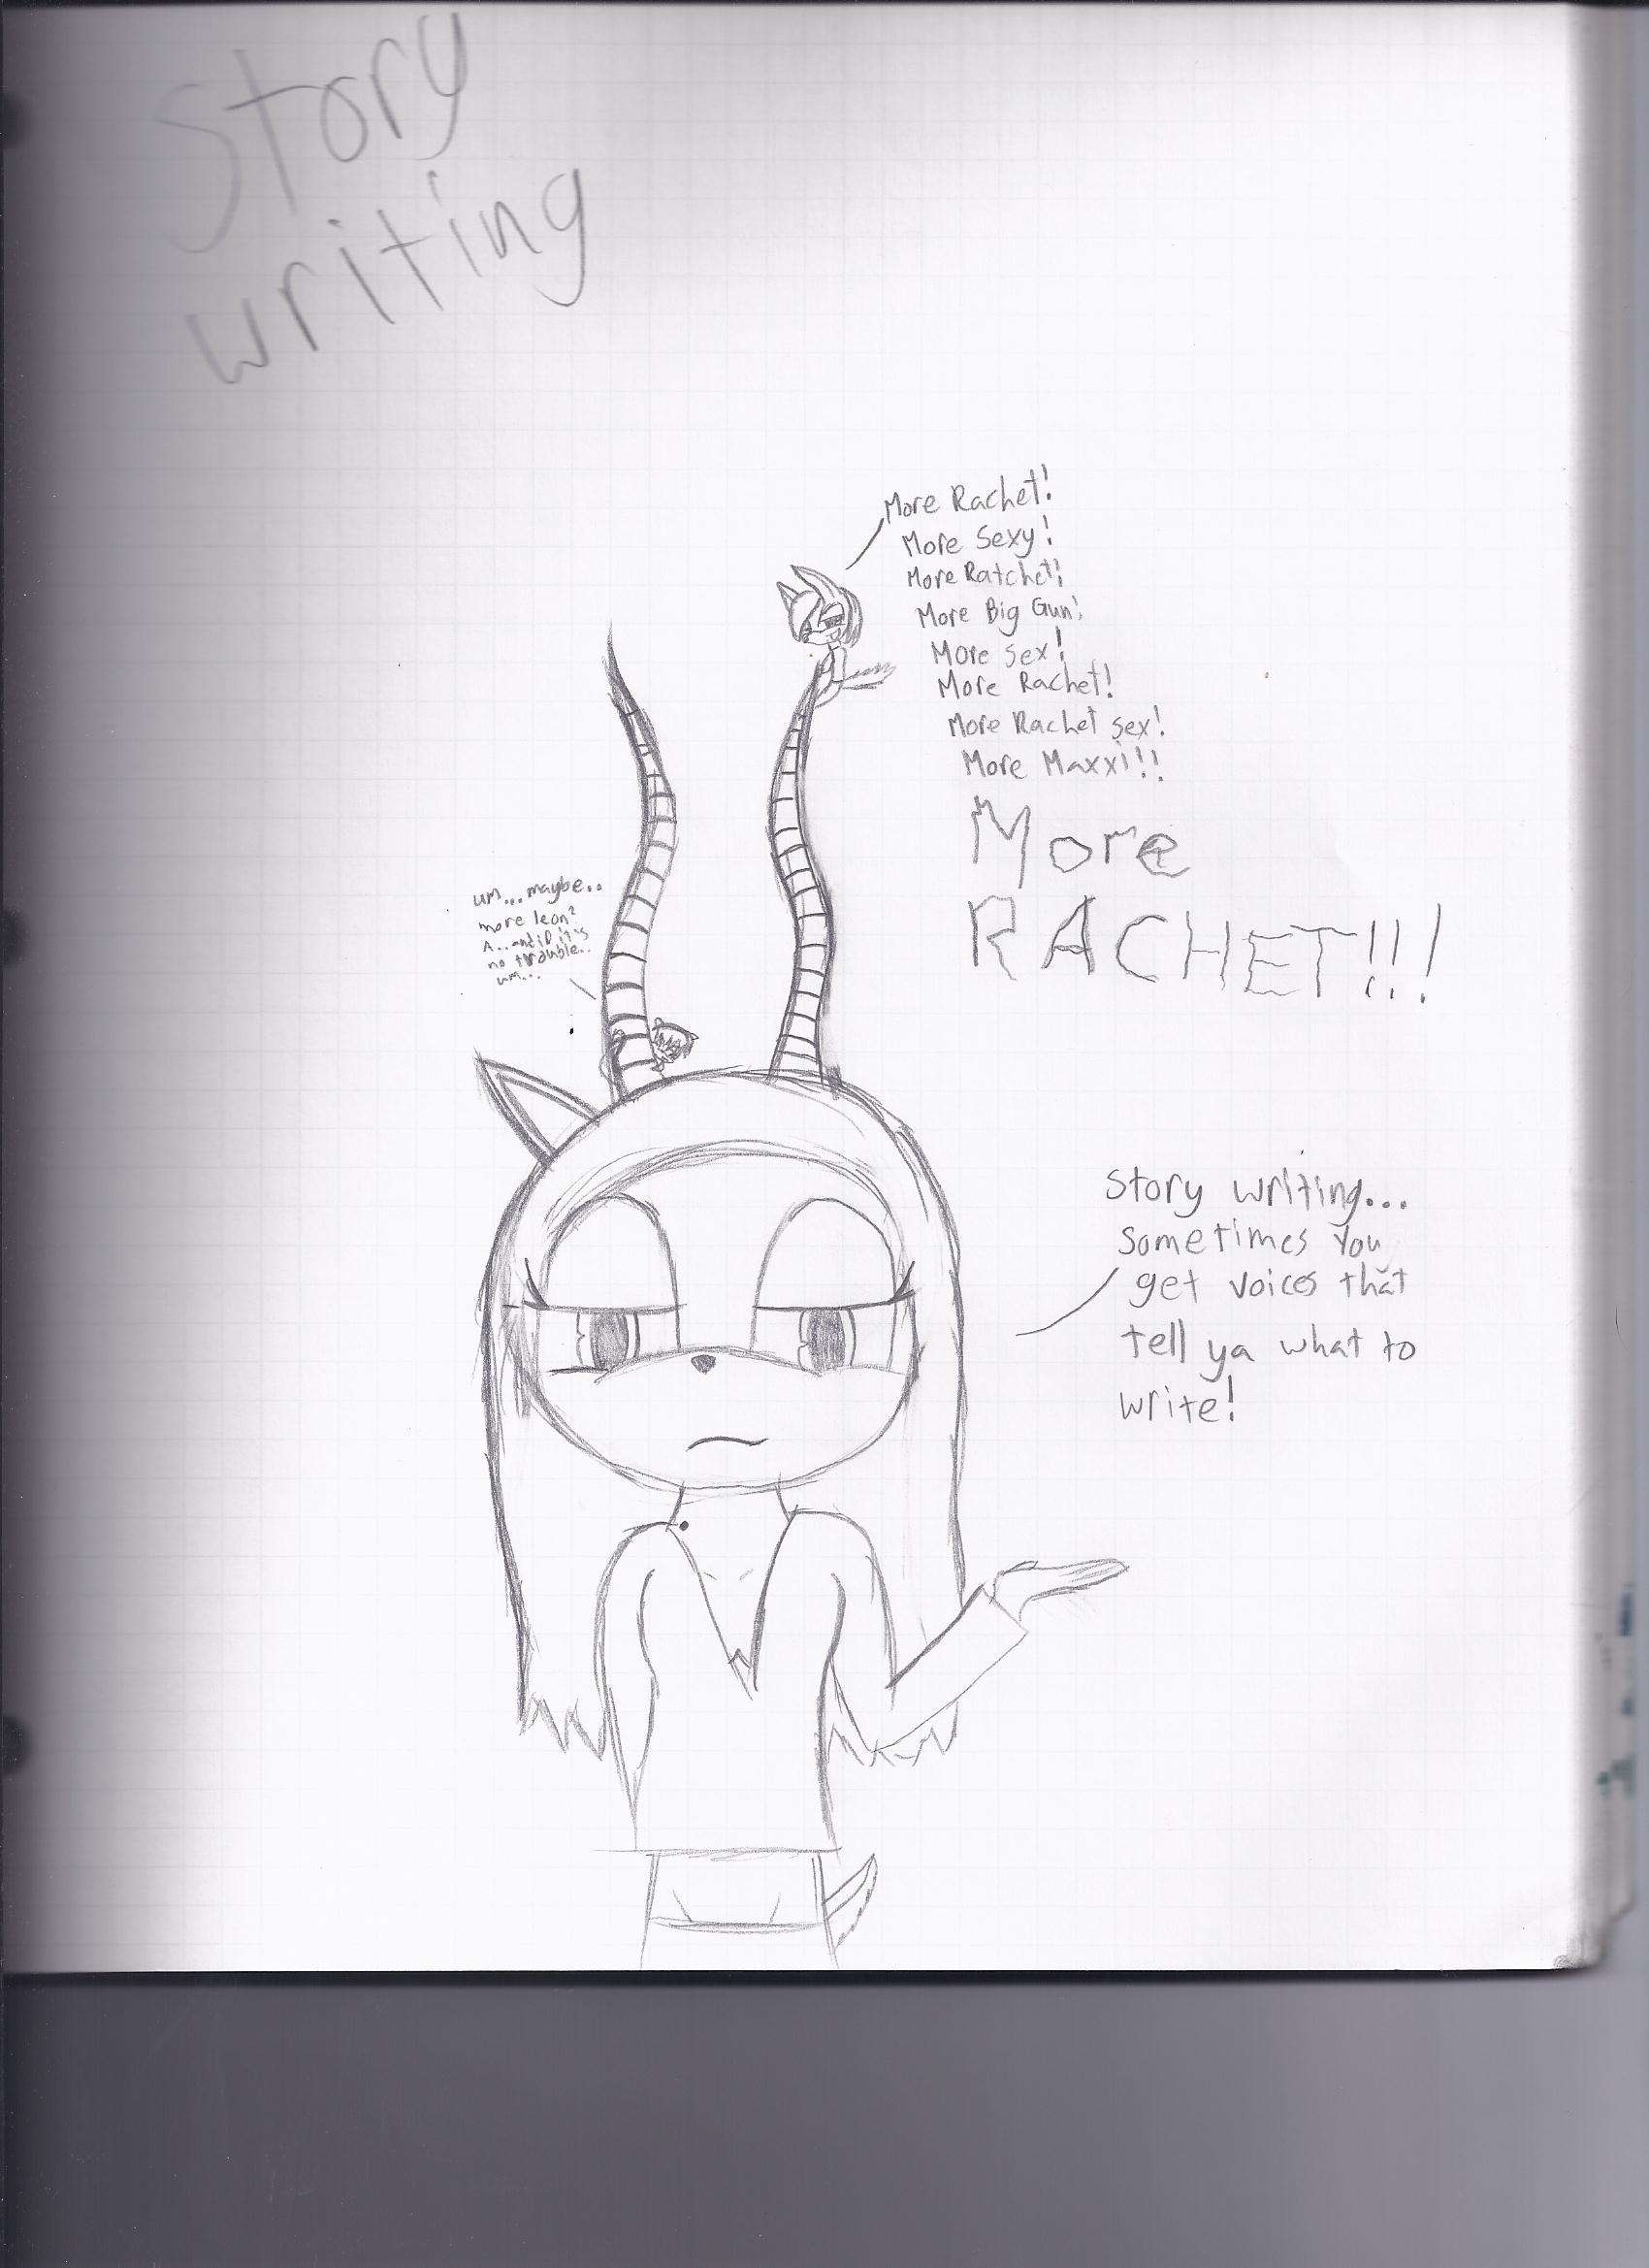 Story
writing
More Rachet!
More Sexy!
More Ratchet!
More Big Gun!
More sex!
More Rachet!
More Rachet sex!
More Maxxi!!
More
RACHET!!!
um...maybe..
more leon?
A...and if it's
no trouble..
um...
Story writing...
Sometimes you
get voices that
tell ya what to
write!